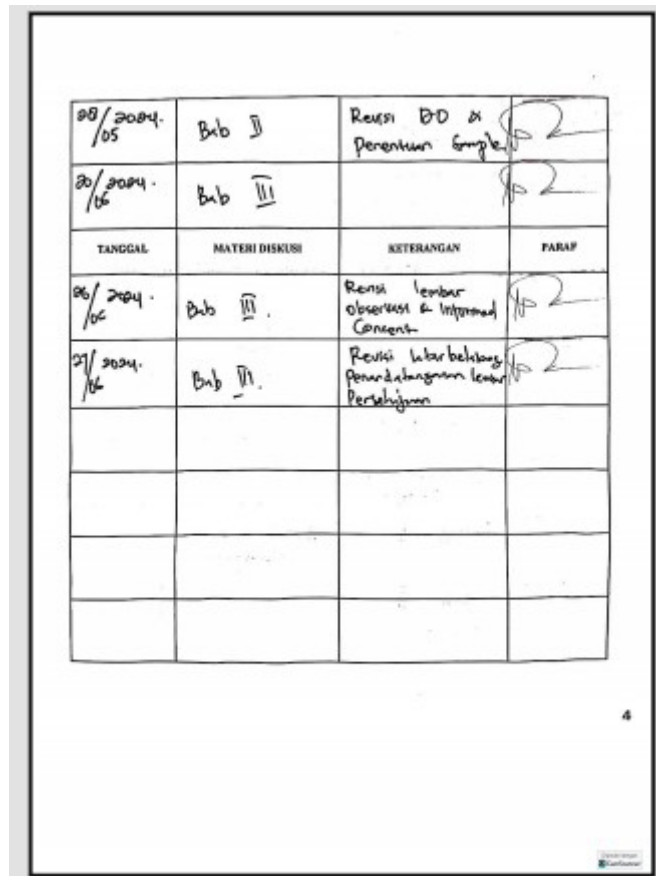 28/05 2024. Bab II Revisi DO & Penentuan Sample
20/06 2024. Bab III
TANGGAL MATERI DISKUSI KETERANGAN PARAF
26/06 2024. Bab III. Revisi lembar observasi & Informed Consent
27/06 2024. Bab III. Revisi latar belakang Penandatanganan lembar Persetujuan
4
CamScanner